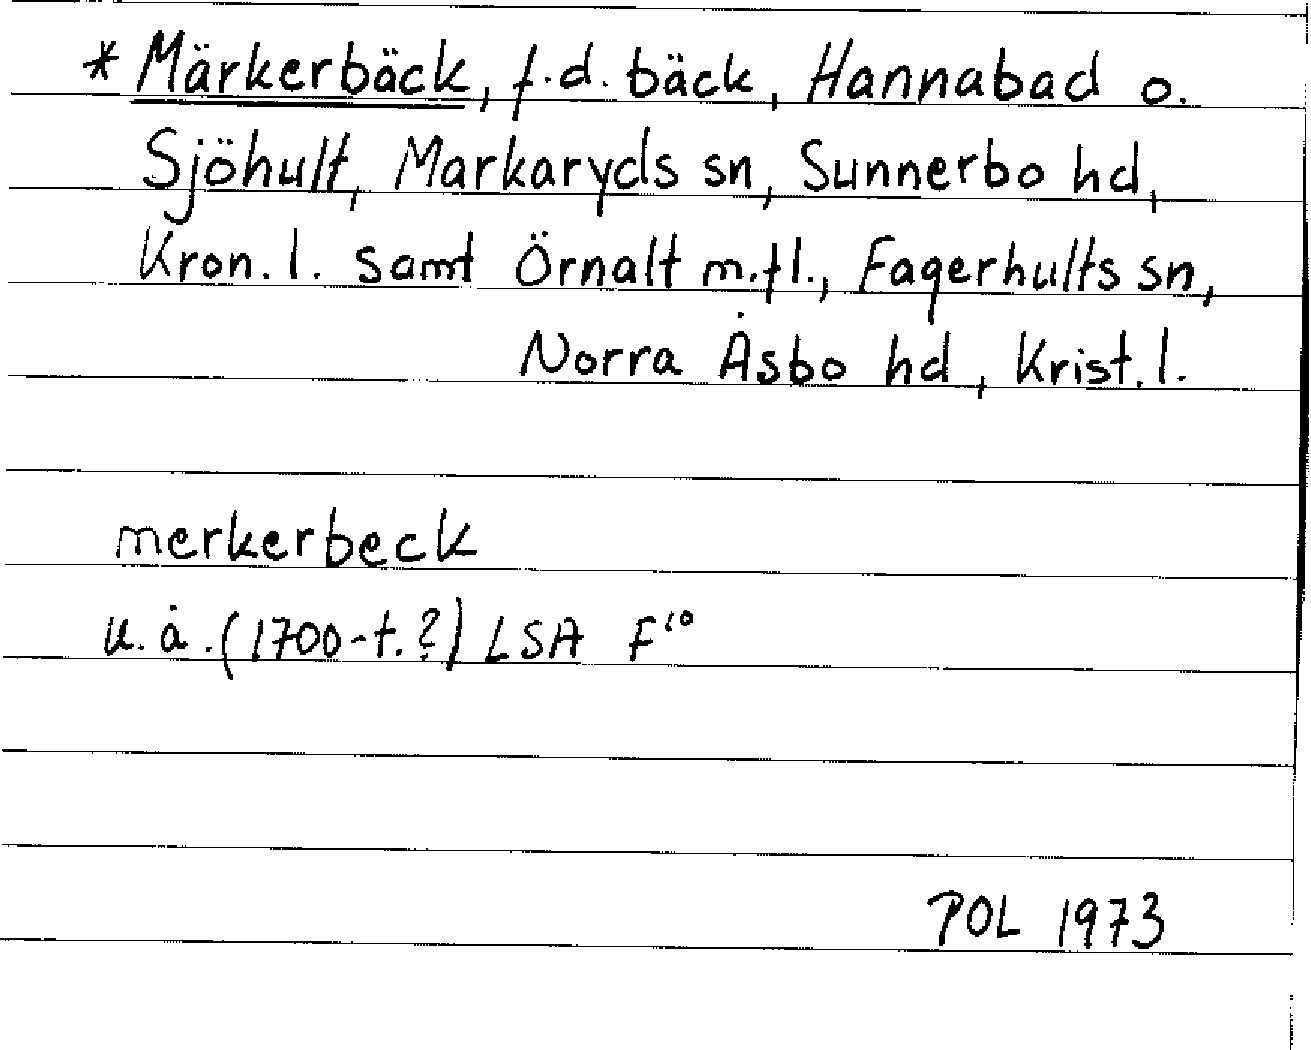 * Märkerbäck, f.d. bäck, Hannabad o.
Sjöhult, Markaryds sn, Sunnerbo hd,
Kron. l. samt Örnalt m.fl., Fagerhults sn,
Norra Åsbo hd, Krist. l.
merkerbeck
u. å. (1700-t.?) LSA F¹⁰
POL 1973